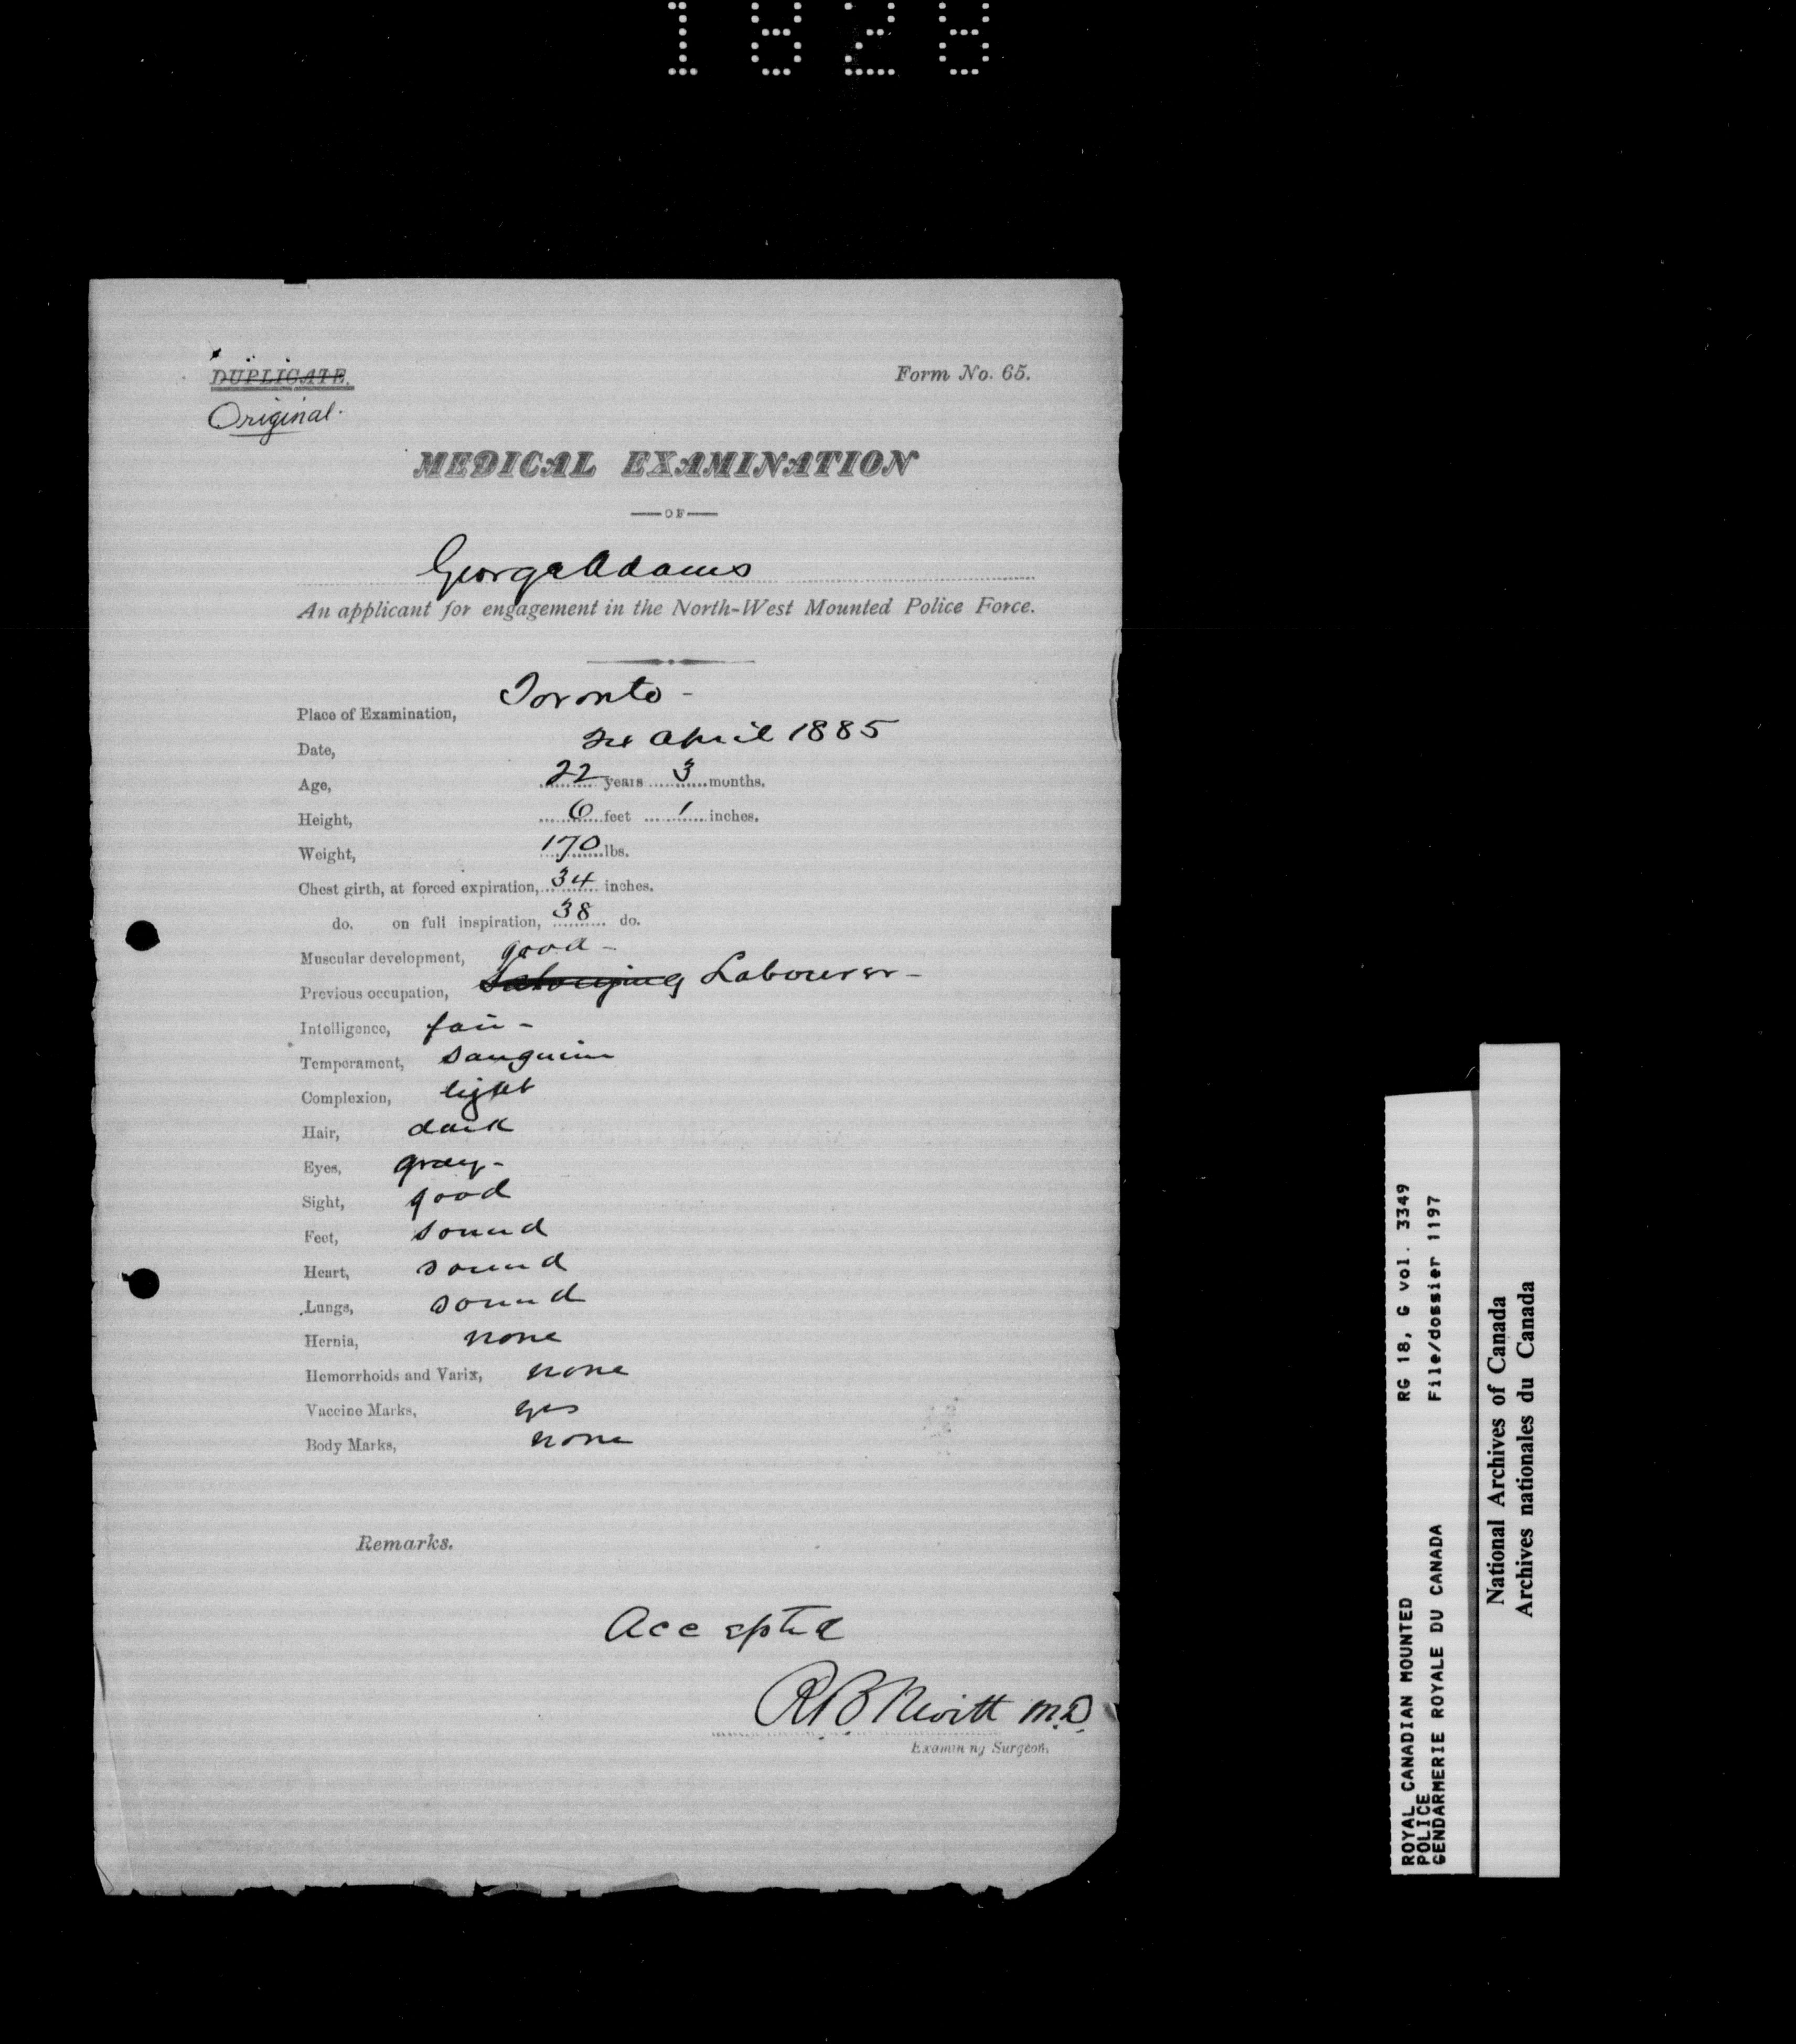 1828
DUPLICATE.
Form No. 65.
Original.
MEDICAL EXAMINATION
—OF—
George Adams
An applicant for engagement in the North-West Mounted Police Force.
Place of Examination, Toronto -
Date, April 1885
Age, 22 years 3 months.
Height, 6 feet 1 inches.
Weight, 170 lbs.
Chest girth, at forced expiration, 34 inches.
do. on full inspiration, 38 do.
Muscular development, good -
Previous occupation, Labourer -
Intelligence, fair -
Temperament, sanguine
Complexion, light
Hair, dark
Eyes, gray -
Sight, good
Feet, sound
Heart, sound
Lungs, sound
Hernia, none
Hemorrhoids and Varix, none
Vaccine Marks, yes
Body Marks, none
Remarks.
Accepted
R. B. Nevitt M.D.
Examining Surgeon.
ROYAL CANADIAN MOUNTED
POLICE
GENDARMERIE ROYALE DU CANADA
RG 18, G vol. 3349
File/dossier 1197
National Archives of Canada
Archives nationales du Canada